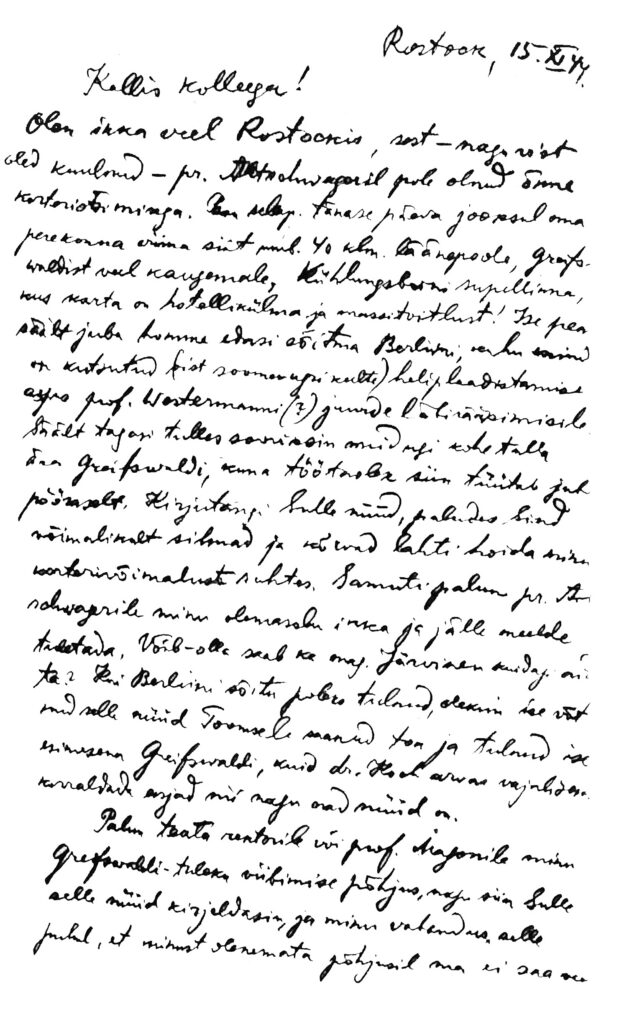 Rostock, 15. XI 44.
Kallis kolleega!
Olen ikka veel Rostockis, sest – nagu vist
oled kuulnud – pr. pole olnud õnne
korteritoiminga. Pean selep. tänase päeva jooksul oma
perekonna viima siit umb. 40 klm. läänepoole, Greifs-
waldist veel kaugemale, Kühlungsborni supellinna,
kus karta on hotellikülma ja massitoitlust! Ise pean
säält juba homme edasi sõitma Berliini, kuhu mind
on kutsutud (vist soomeugri keelte) heliplaadistamise
asjus prof. Westermanni (?) juurde läbirääkimisile.
Säält tagasi tulles sooviksin muidugi kohe tulla
ära Greifswaldi, kuna töötaolek siin tüütab juba
pööraselt. Kirjutangi Sulle nüüd, paludes Sind
võimalikult silmad ja kõrvad lahti hoida minu
korterivõimaluste suhtes. Samuti palun pr.
schwagerile minu olemasolu ikka ja jälle meelde
tuletada. Võib-olla saab ka mag. Järvinen kuidagi
ta? Kui Berliini sõitu poleks tulnud, oleksin ise vist
nüüd Toomsele saanud toa ja tulnud ise
esimesena Greifswaldi, kuid dr. Koch arvas vajalikuna
korraldada asjad nii nagu nad nüüd on.
Palun teata rektorile või prof. Magonile minu
Greifswaldi-tuleku viibimise põhjus, nagu siin Sulle
selle nüüd kirjeldasin, ja minu vabandus selle
puhul, et minust olenemata põhjusil ma ei saa